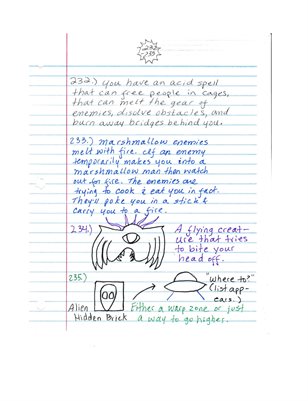 232
235
232.) You have an acid spell
that can free people in cages,
that can melt the gear of
enemies, disolve obstacles, and
burn away bridges behind you.
233.) Marshmallow enemies
melt with fire. If an enemy
temporarily makes you into a
marshmallow man then watch
out for fire. The enemies are
trying to cook & eat you in fact.
They'll poke you in a stick &
carry you to a fire.
234.)
A flying creat-
ure that tries
to bite your
head off.
235)
"Where to?"
(list app-
ears.)
Alien
Hidden Brick
Either a warp zone or just
a way to go higher.